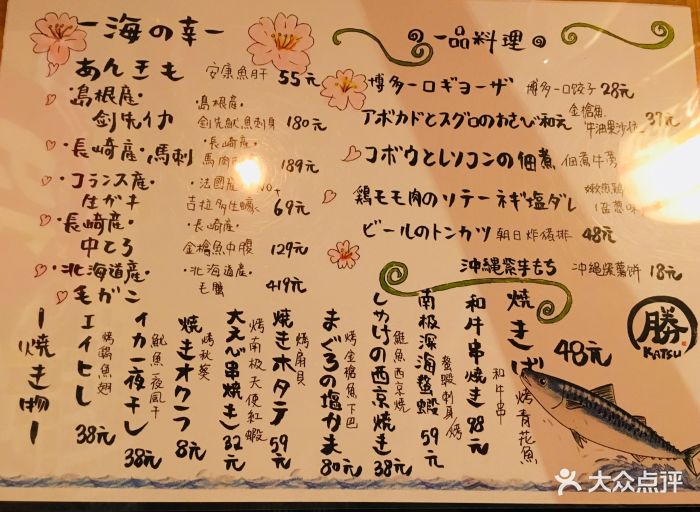 一海の幸一
あんきも 安康魚肝 55元
島根産・ 島根產・
剣先イカ 剑先魷魚刺身 180元
・長崎産・馬刺 ・長崎產・
馬肉 189元
・フランス産・ ・法國產・
生ガキ 吉拉多生蠔 69元
・長崎産・ ・長崎產・
中とろ 金槍魚中腹 129元
・北海道産・ ・北海道產・
毛がニ 毛蟹 419元
一品料理
博多一口ギョーザ 博多一口餃子 28元
アボカドとマグロのわさび和え 金槍魚 牛油果沙 37元
ゴボウとレンコンの佃煮 佃煮牛蒡
鶏モモ肉のソテーネギ塩ダレ 嫩煎鶏
ビールのトンカツ 朝日炸豬排 48元
沖縄紫芋もち 沖縄紫薯餅 18元
ー焼き物ー
エイヒレ 烤鰩魚翅 38元
イカ一夜干し 魷魚一夜風干 38元
焼きオクラ 烤秋葵 8元
大えび串焼き 烤南极天使紅蝦 32元
焼きホタテ 烤扇貝 59元
まぐろの塩かま 烤金槍魚下巴 80元
しゃけの西京焼き 鮭魚西京燒 38元
南极深海螯蝦 螯蝦刺身/烤 59元
和牛串焼き 和牛串 98元
焼きさば 烤青花魚 48元
勝
KATSU
大众点评